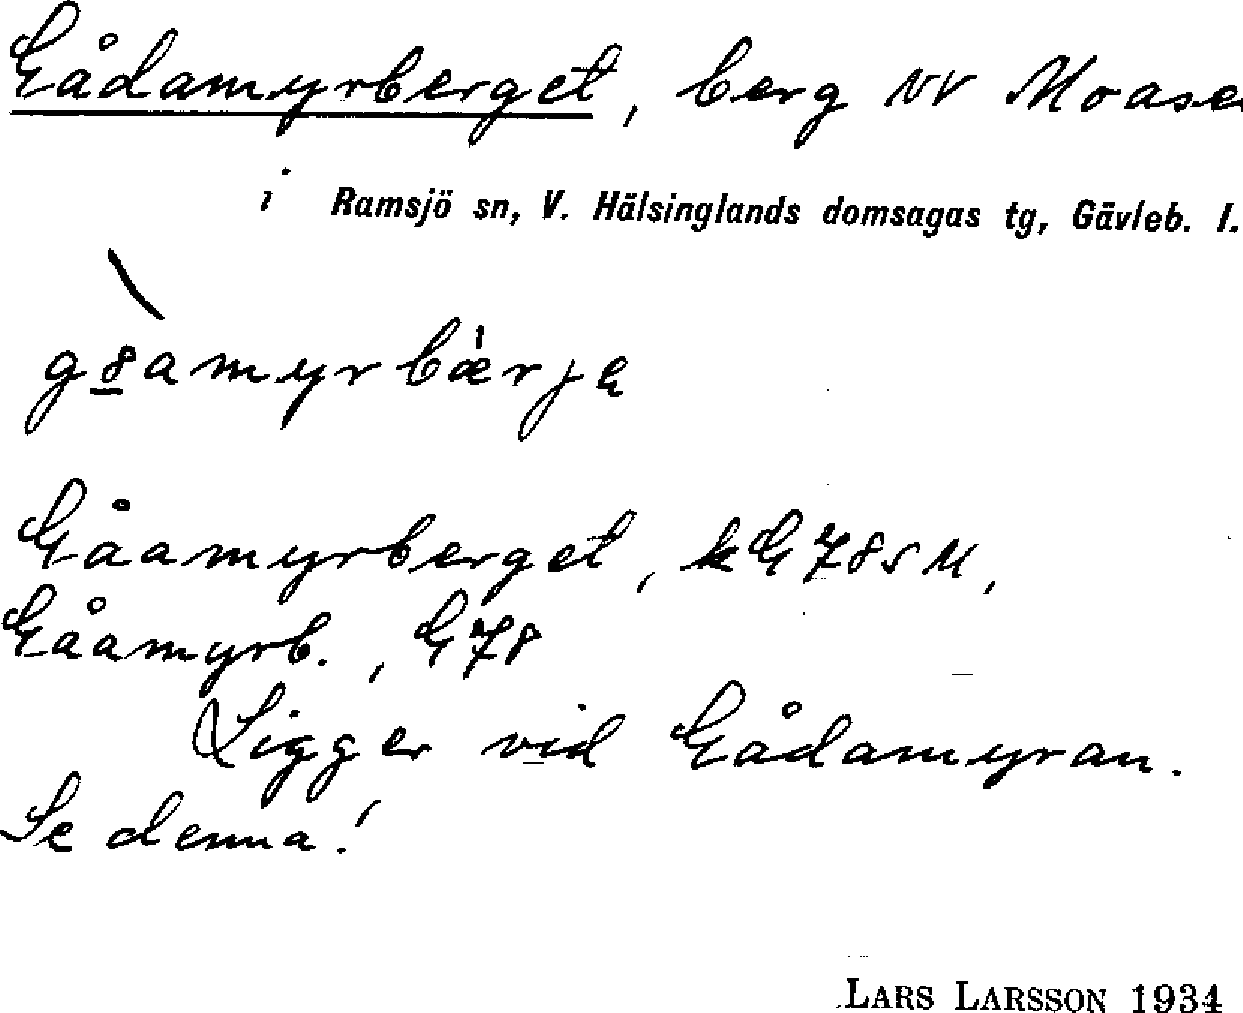 Gådamyrberget, berg NV Moasen
i Ramsjö sn, V. Hälsinglands domsagas tg, Gävleb. l.
Gåamyrberget, kG78SM,
Gåamyrb., G78
Ligger vid Gådamyran.
Se denna!
LARS LARSSON 1934